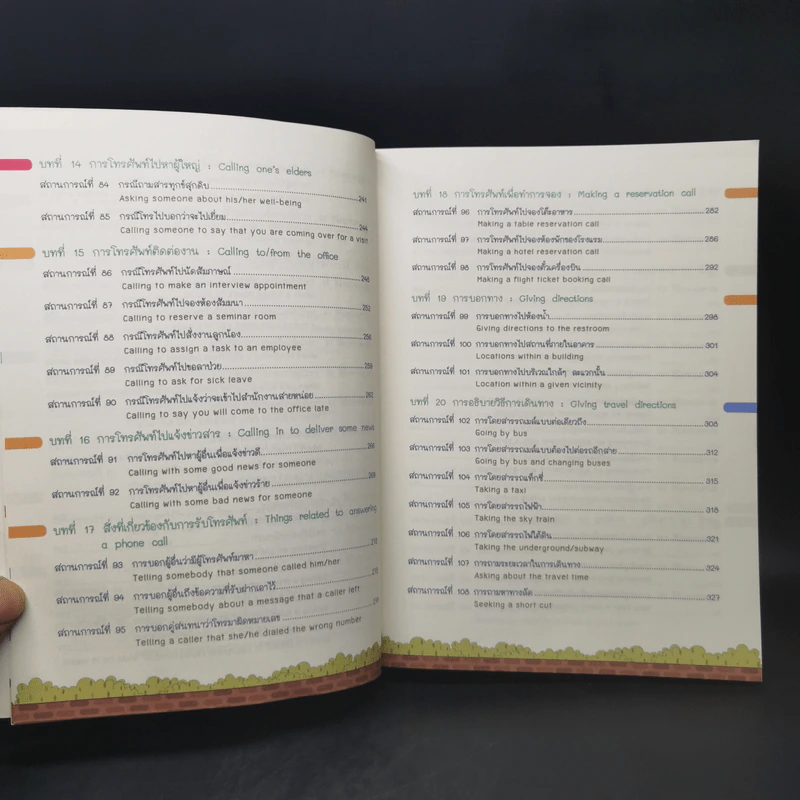 บทที่ 14 การโทรศัพท์ไปหาผู้ใหญ่ : Calling one's elders
สถานการณ์ที่ 84 กรณีถามสารทุกข์สุกดิบ 241
Asking someone about his/her well-being
สถานการณ์ที่ 85 กรณีโทรไปบอกว่าจะไปเยี่ยม 244
Calling someone to say that you are coming over for a visit
บทที่ 15 การโทรศัพท์ติดต่องาน : Calling to/from the office
สถานการณ์ที่ 86 กรณีโทรศัพท์ไปนัดสัมภาษณ์ 248
Calling to make an interview appointment
สถานการณ์ที่ 87 กรณีโทรศัพท์ไปจองห้องสัมมนา
Calling to reserve a seminar room
สถานการณ์ที่ 88 กรณีโทรศัพท์ไปสั่งงานลูกน้อง 256
Calling to assign a task to an employee
สถานการณ์ที่ 89 กรณีโทรศัพท์ไปขอลาป่วย 259
Calling to ask for sick leave
สถานการณ์ที่ 90 กรณีโทรศัพท์ไปแจ้งว่าจะเข้าไปสำนักงานสายหน่อย 262
Calling to say you will come to the office late
บทที่ 16 การโทรศัพท์ไปแจ้งข่าวสาร : Calling in to deliver some news
สถานการณ์ที่ 91 การโทรศัพท์ไปหาผู้อื่นเพื่อแจ้งข่าวดี
Calling with some good news for someone
สถานการณ์ที่ 92 การโทรศัพท์ไปหาผู้อื่นเพื่อแจ้งข่าวร้าย
Calling with some bad news for someone
บทที่ 17 สิ่งที่เกี่ยวข้องกับการรับโทรศัพท์ : Things related to answering
a phone call
สถานการณ์ที่ 93 การบอกผู้อื่นว่ามีผู้โทรศัพท์มาหา
Telling somebody that someone called him/her
สถานการณ์ที่ 94 การบอกผู้อื่นถึงข้อความที่รับฝากเอาไว้
Telling somebody about a message that a caller left
สถานการณ์ที่ 95 การบอกคู่สนทนาว่าโทรมาผิดหมายเลข
Telling a caller that she/he dialed the wrong number
บทที่ 18 การโทรศัพท์เพื่อทำการจอง : Making a reservation call
สถานการณ์ที่ 96 การโทรศัพท์ไปจองโต๊ะอาหาร 282
Making a table reservation call
สถานการณ์ที่ 97 การโทรศัพท์ไปจองห้องพักของโรงแรม 286
Making a hotel reservation call
สถานการณ์ที่ 98 การโทรศัพท์ไปจองตั๋วเครื่องบิน 292
Making a flight ticket booking call
บทที่ 19 การบอกทาง : Giving directions
สถานการณ์ที่ 99 การบอกทางไปห้องน้ำ 298
Giving directions to the restroom
สถานการณ์ที่ 100 การบอกทางไปสถานที่ภายในอาคาร 301
Locations within a building
สถานการณ์ที่ 101 การบอกทางไปบริเวณใกล้ๆ ละแวกนั้น 304
Location within a given vicinity
บทที่ 20 การอธิบายวิธีการเดินทาง : Giving travel directions
สถานการณ์ที่ 102 การโดยสารรถเมล์แบบต่อเดียวถึง 308
Going by bus
สถานการณ์ที่ 103 การโดยสารรถเมล์แบบต้องไปต่อรถอีกสาย 312
Going by bus and changing buses
สถานการณ์ที่ 104 การโดยสารรถแท็กซี่ 315
Taking a taxi
สถานการณ์ที่ 105 การโดยสารรถไฟฟ้า 318
Taking the sky train
สถานการณ์ที่ 106 การโดยสารรถไฟใต้ดิน 321
Taking the underground/subway
สถานการณ์ที่ 107 การถามระยะเวลาในการเดินทาง 324
Asking about the travel time
สถานการณ์ที่ 108 การถามหาทางลัด 327
Seeking a short cut